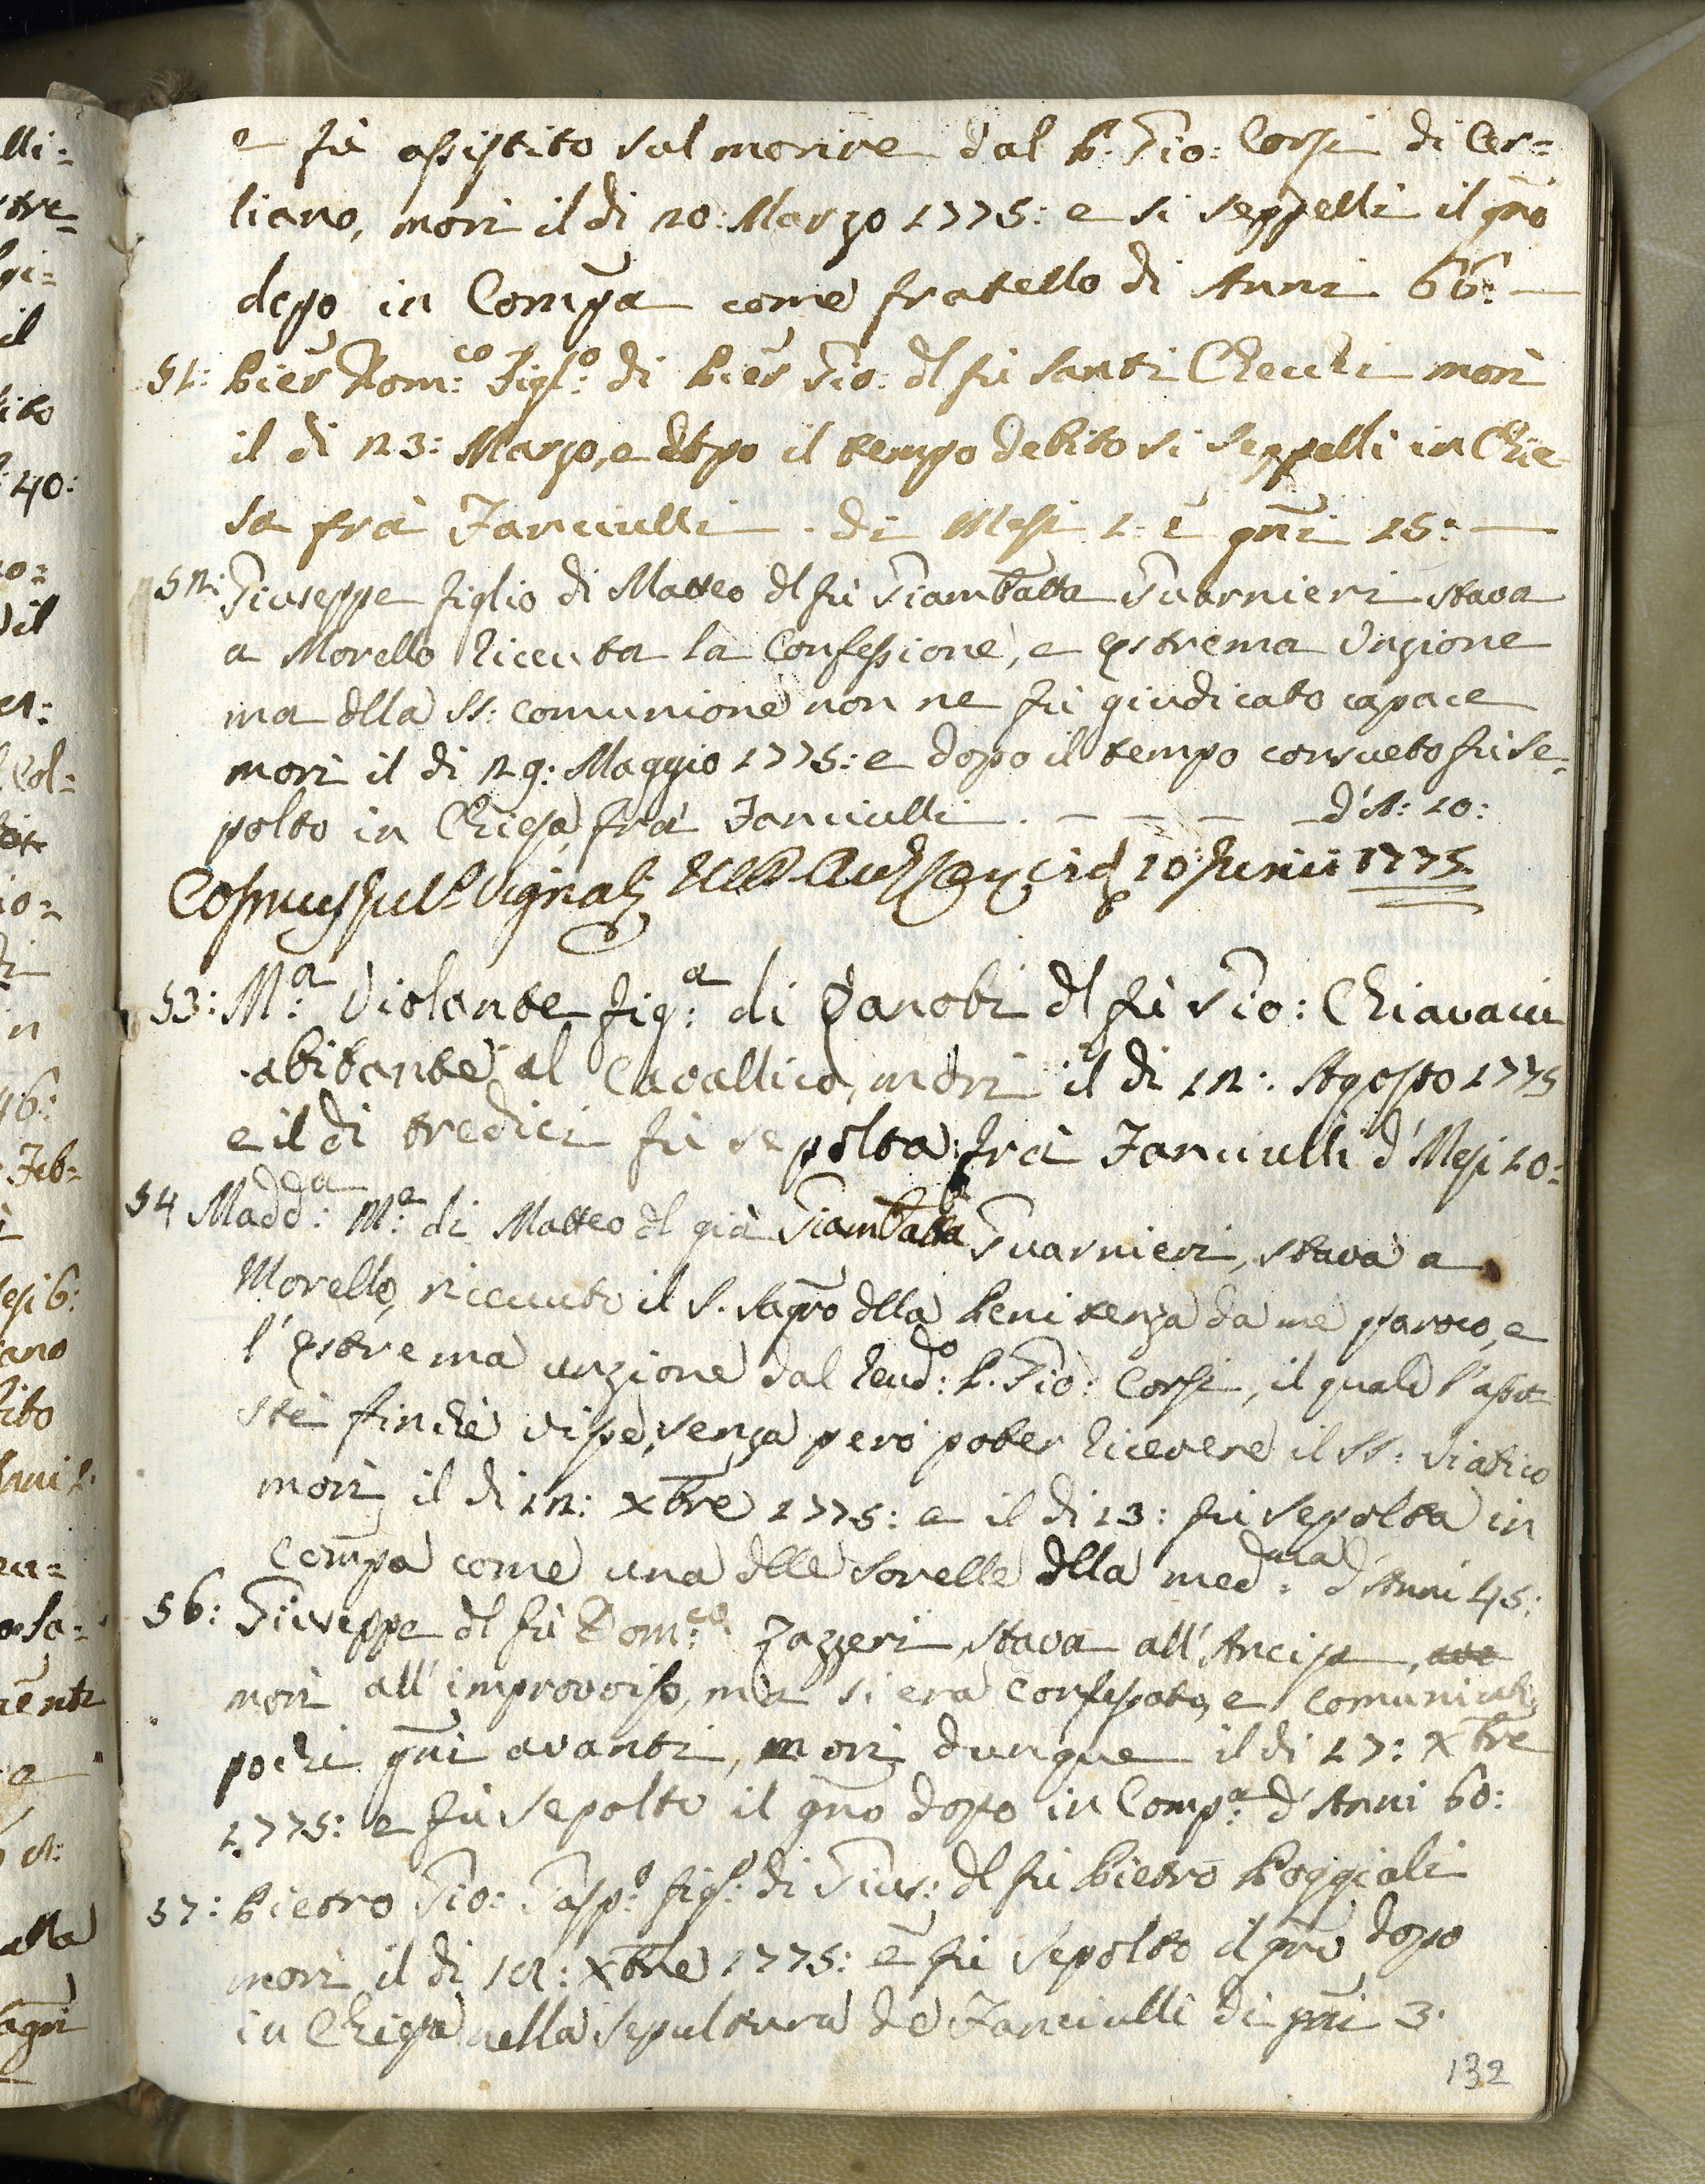 e fù assistito sul morire dal P. Gio: Corsi di Cer=
liano, morì il di 20: Marzo 1775: e si seppellì il gño
dopo in Compa come fratello di Anni 66:
51: Pier Dom:co Figl:o di Pier Gio: dl fù Santi Checchi morì
il di 23: Marzo, e dopo il tempo debito si seppellì in Chie
sa frà Fanciulli di Mesi 1: e gñi 15:
52: Giuseppe figlio di Matteo dl fù Giambatta Guarnieri stava
a Morello riceuta la Confessione, e estrema Unzione
ma dlla SS: comunione non ne fù giudicato capace
morì il di 29: Maggio 1775: e dopo il tempo consueto fù se=
polto in Chiesa frà Fanciulli. d'A: 10:
10 Junii 1775
53: M:a Violante fig:a di Zanobi dl fù Gio: Chiavacci
abitante al Cavallico, morì il di 12: Agosto 1775
e il di tredici fù sepolta frà Fanciulli d'Mesi 10:
54 Madd:a M:e di Matteo dl già Giambatta Guarnieri, stava a
Morello, riceuuto il S. Sagrõ dlla Penitenza da me paroco, e
l'estrema unzione dal Reud:o P. Gio: Corsi, il quale l'assi
stè finchè visse, senza però poter ricevere il SS: Viatico
morì il di 12: Xbre 1775: e il di 13: fù sepolta in
Compa come una dlle Sorelle dlla med:ma d'Anni 45:
56: Giuseppe dl fù Dom:co Zazzeri stava all'Ancisa,
morì all'improvviso, ma si era confessato, e comunicato
pochi gñi avanti, morì dunque il di 17: Xbre
1775: e fù sepolto il gño dopo in Comp:a d'Anni 60:
57: Pietro Gio: Gasp:o figl:o di Gius: dl fù Pietro Poggiali
morì il di 12: Xbre 1775: e fù sepolto il gño dopo
in Chiesa nella sepultura de Fanciulli di gñi 3.
132